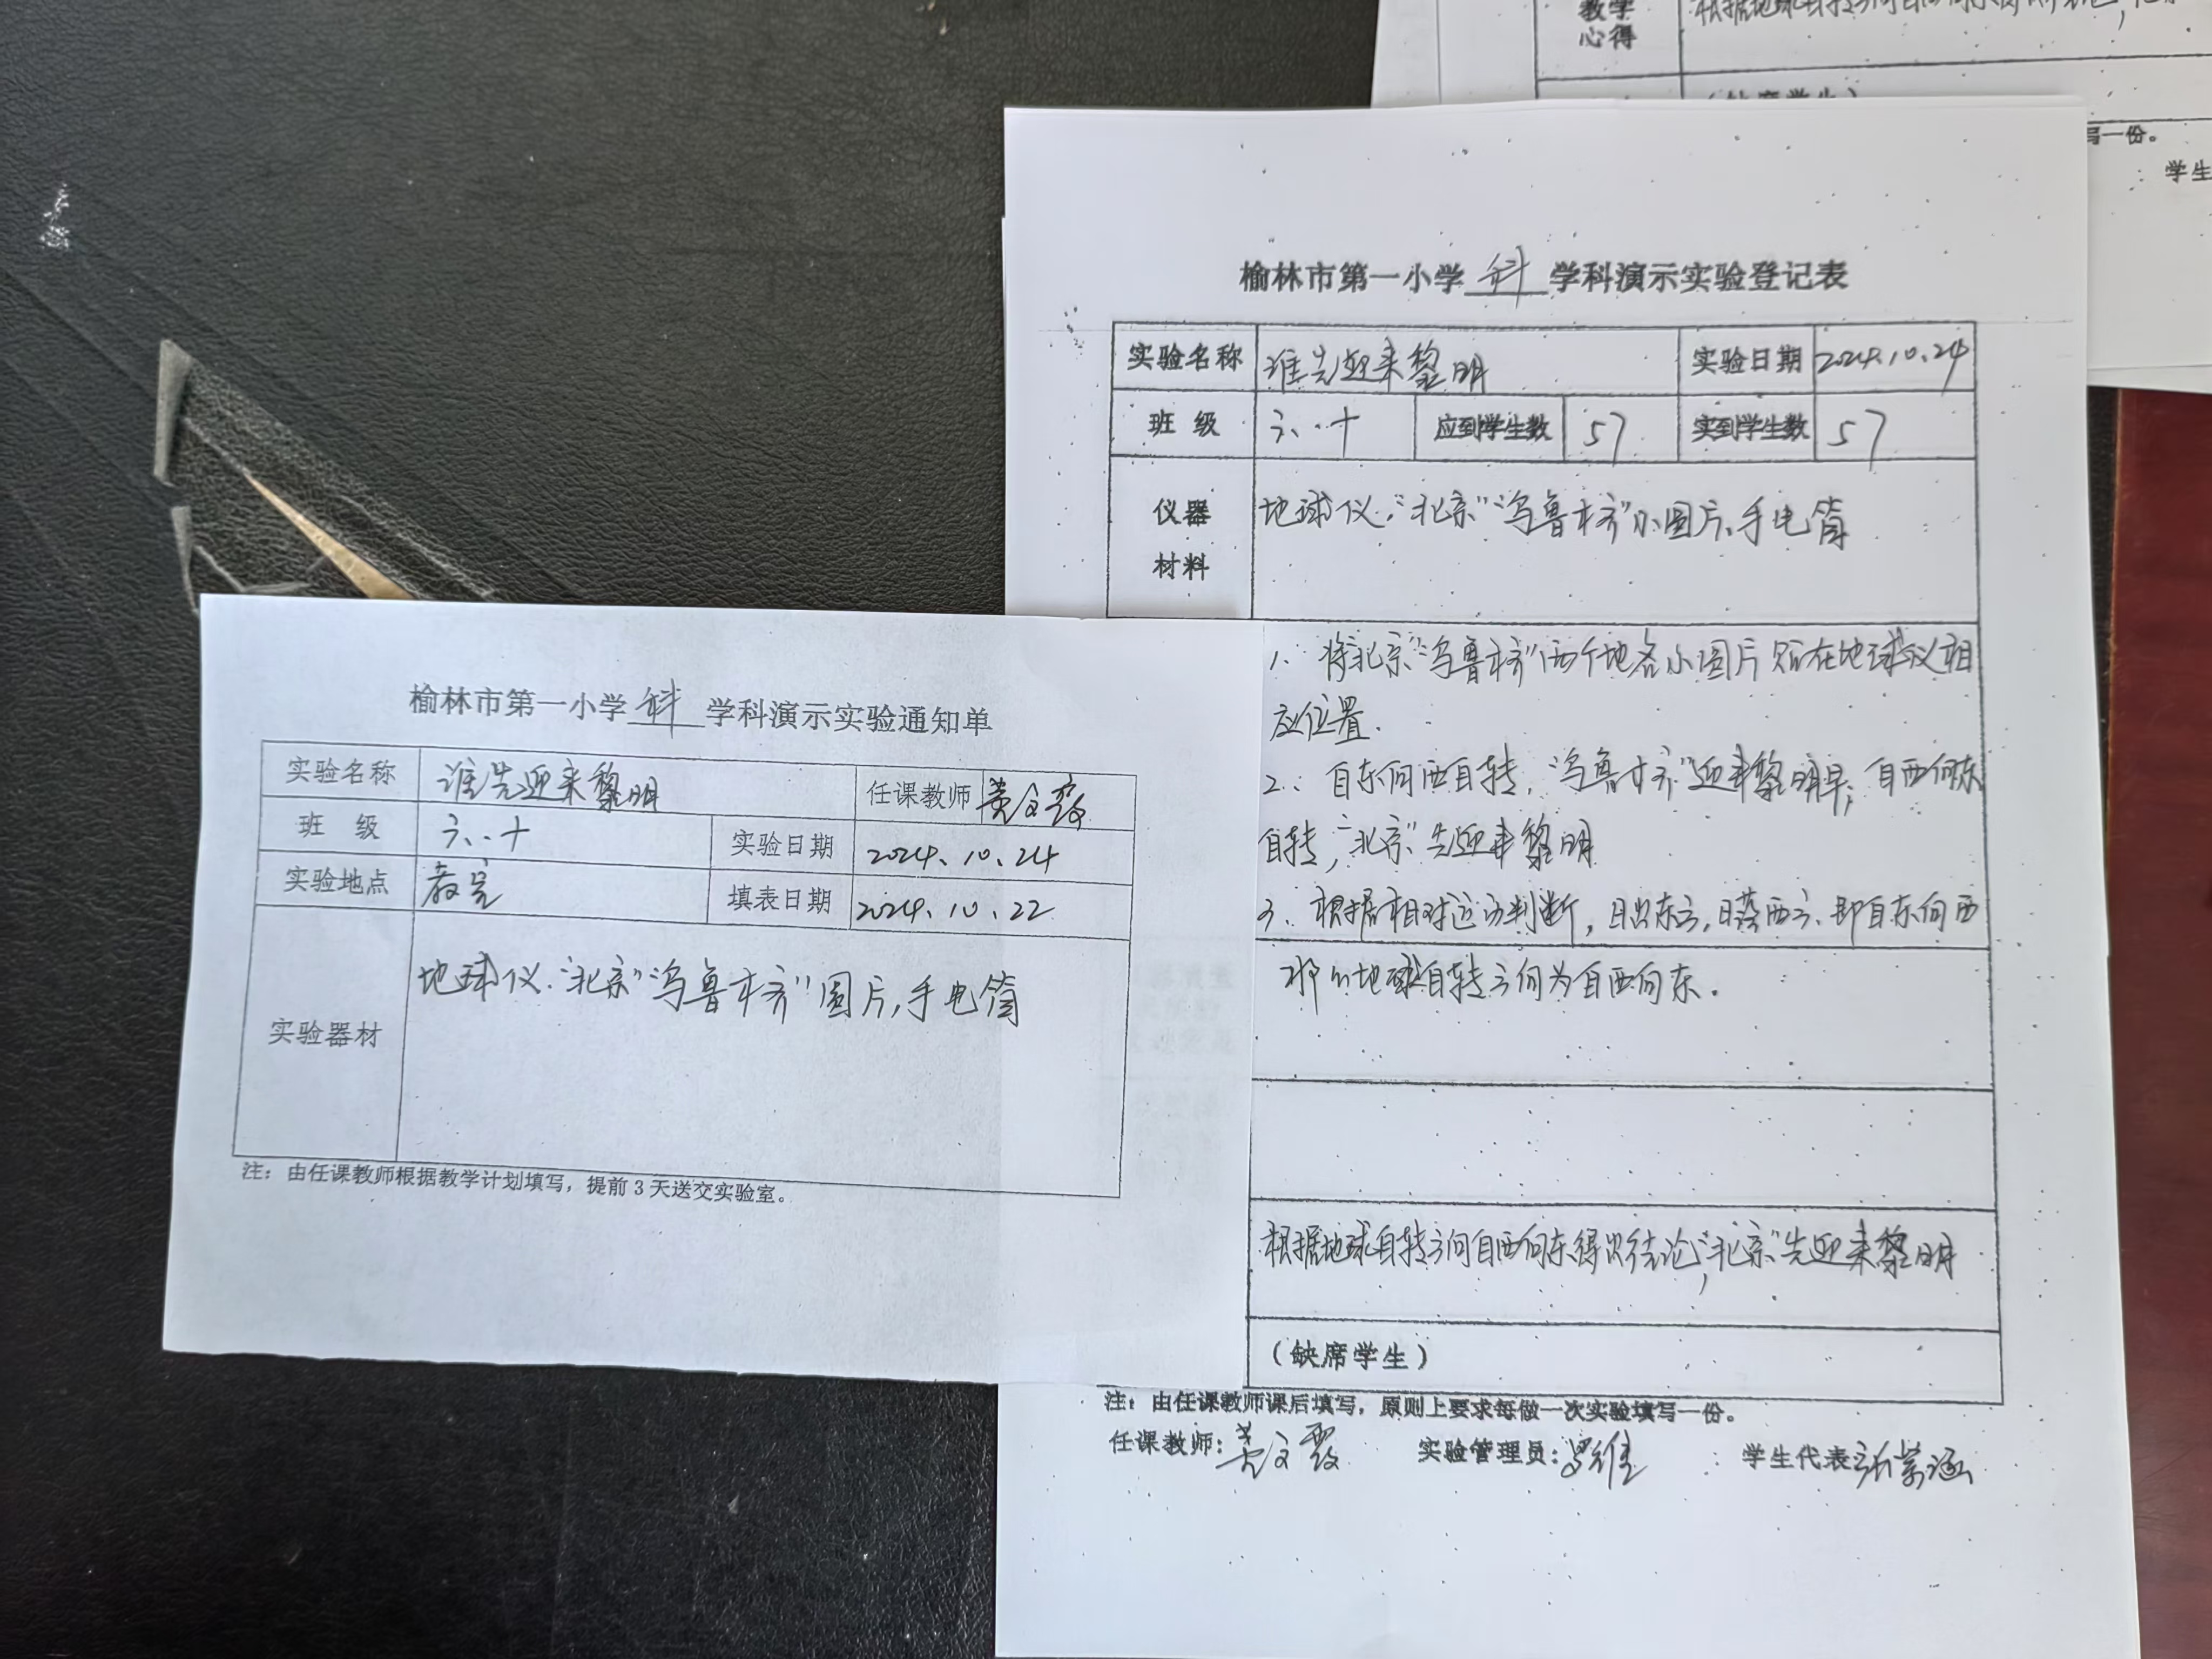 教学
心得
(缺席学生)
写一份。
学生
榆林市第一小学 科 学科演示实验登记表
实验名称 谁先迎来黎明 实验日期 2024.10.24
班 级 六.十 应到学生数 57 实到学生数 57
仪器
材料
地球仪,“北京”“乌鲁木齐”小图片,手电筒
1、将“北京”“乌鲁木齐”两个地名小图片贴在地球仪相
应位置.
2、自东向西自转,“乌鲁木齐”迎来黎明早;自西向东
自转,“北京”先迎来黎明
3、根据相对运动判断,日出东方,日落西方,即自东向西
那么地球自转方向为自西向东.
根据地球自转方向自西向东得出结论,“北京”先迎来黎明
(缺席学生)
注:由任课教师课后填写,原则上要求每做一次实验填写一份。
任课教师:黄文霞 实验管理员: 学生代表
榆林市第一小学 科 学科演示实验通知单
实验名称 谁先迎来黎明 任课教师 黄文霞
班 级 六.十 实验日期 2024、10、24
实验地点 教室 填表日期 2024、10、22
实验器材 地球仪.“北京”“乌鲁木齐”图片,手电筒
注:由任课教师根据教学计划填写,提前3天送交实验室。